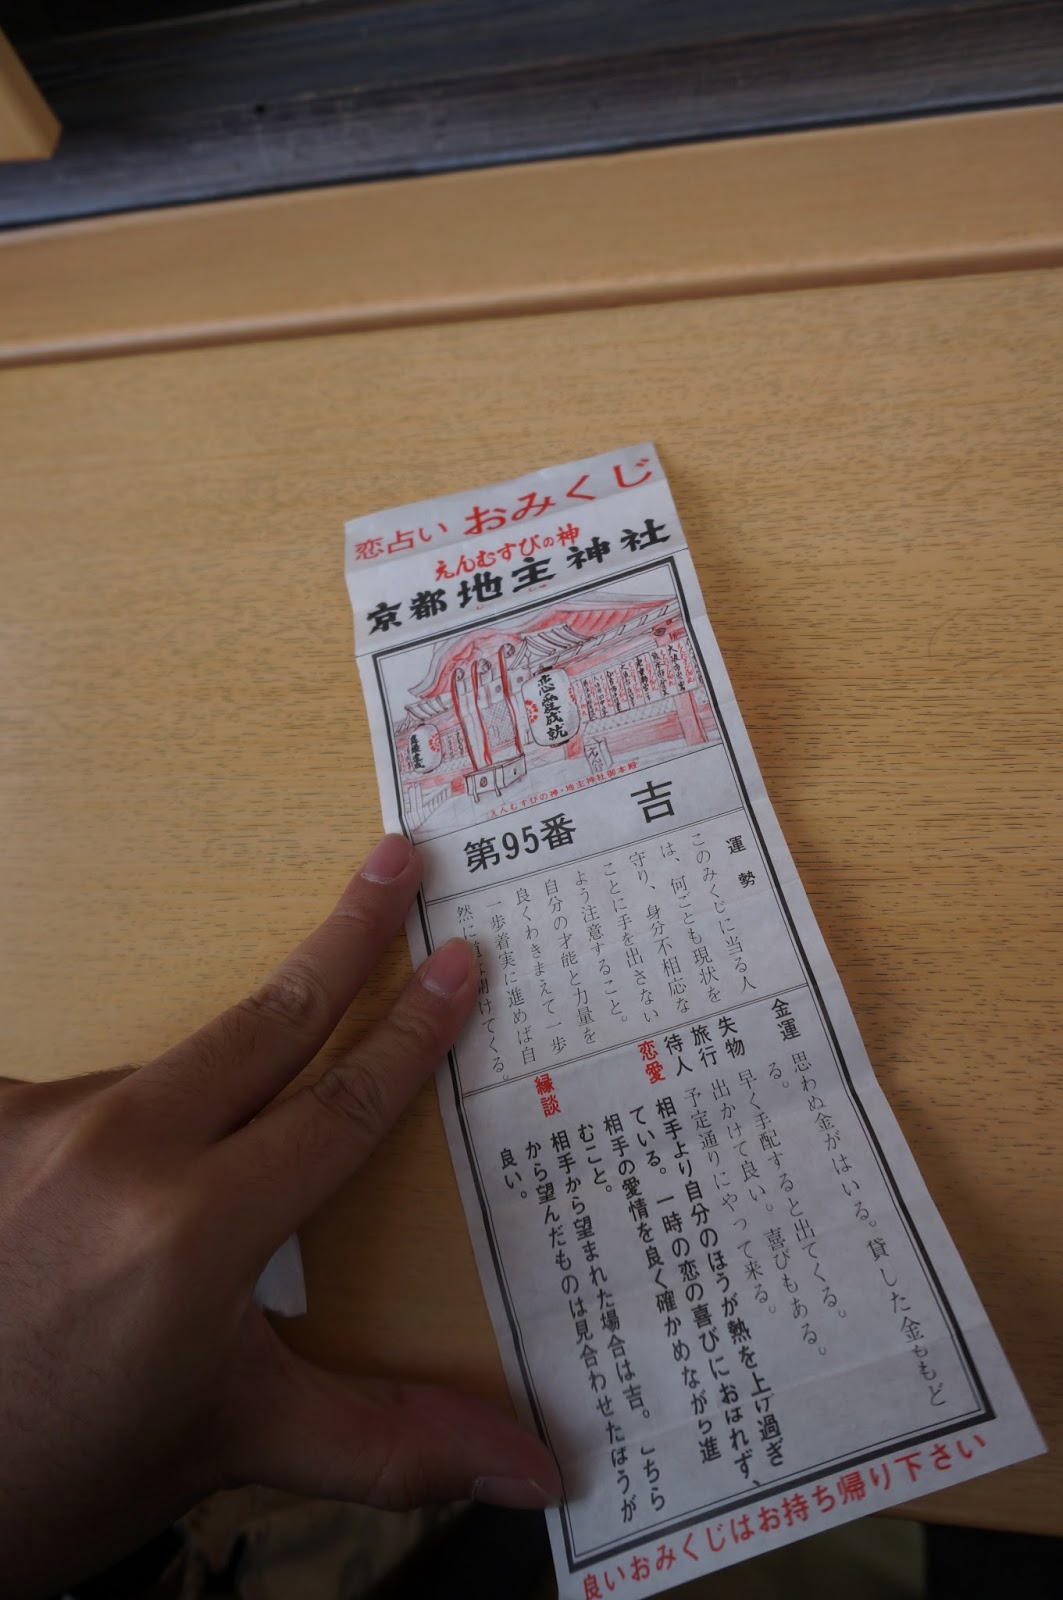 恋占い おみくじ
えんむすびの神
京都地主神社
恋愛成就
えんむすびの神・地主神社御本殿
第95番 吉
運勢
このみくじに当る人
は、何ごとも現状を
守り、身分不相応な
ことに手を出さない
よう注意すること。
自分の才能と力量を
良くわきまえて一歩
一歩着実に進めば自
然に 開けてくる。
金運 思わぬ金がはいる。貸した金ももど
る。
失物 早く手配すると出てくる。
旅行 出かけて良い。喜びもある。
待人 予定通りにやって来る。
恋愛 相手より自分のほうが熱を上げ過ぎ
ている。一時の恋の喜びにおぼれず、
相手の愛情を良く確かめながら進
むこと。
縁談 相手から望まれた場合は吉。こちら
から望んだものは見合わせたほうが
良い。
良いおみくじはお持ち帰り下さい